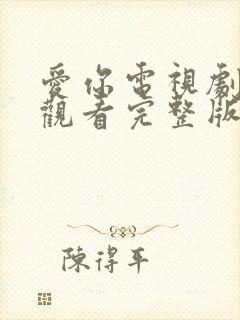 愛你電視劇
觀看完整版
陳得平